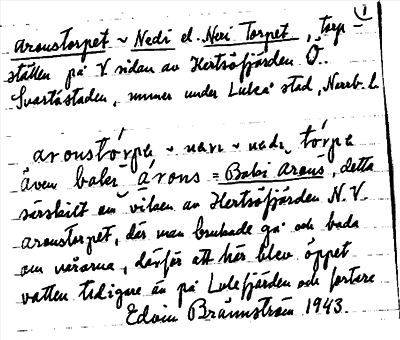 1
Aronstorpet ~ Nedi el. Neri Torpet, torp-
ställen på V. sidan av Hertsöfjärden Ö.
Svartöstaden, under Luleå stad, Norrb. l.
aronstórpe ~ neri ~ nedi tórpe
även baki árons = Baki Arons, detta
särskilt om viken av Hertsöfjärden N.V.
aronstorpet, där man brukade gå och bada
om vårarna, därför att här blev öppet
vatten tidigare än på Lulefjärden och fortare
Edvin Brännström 1943.